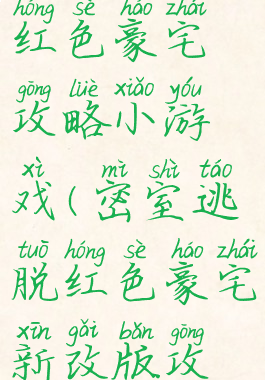 hóng sè háo zhái
红色豪宅
gōng lüè xiǎo yóu
攻略小游
xì mì shì táo
戏(密室逃
tuō hóng sè háo zhái
脱红色豪宅
xīn gǎi bǎn gōng
新改版攻